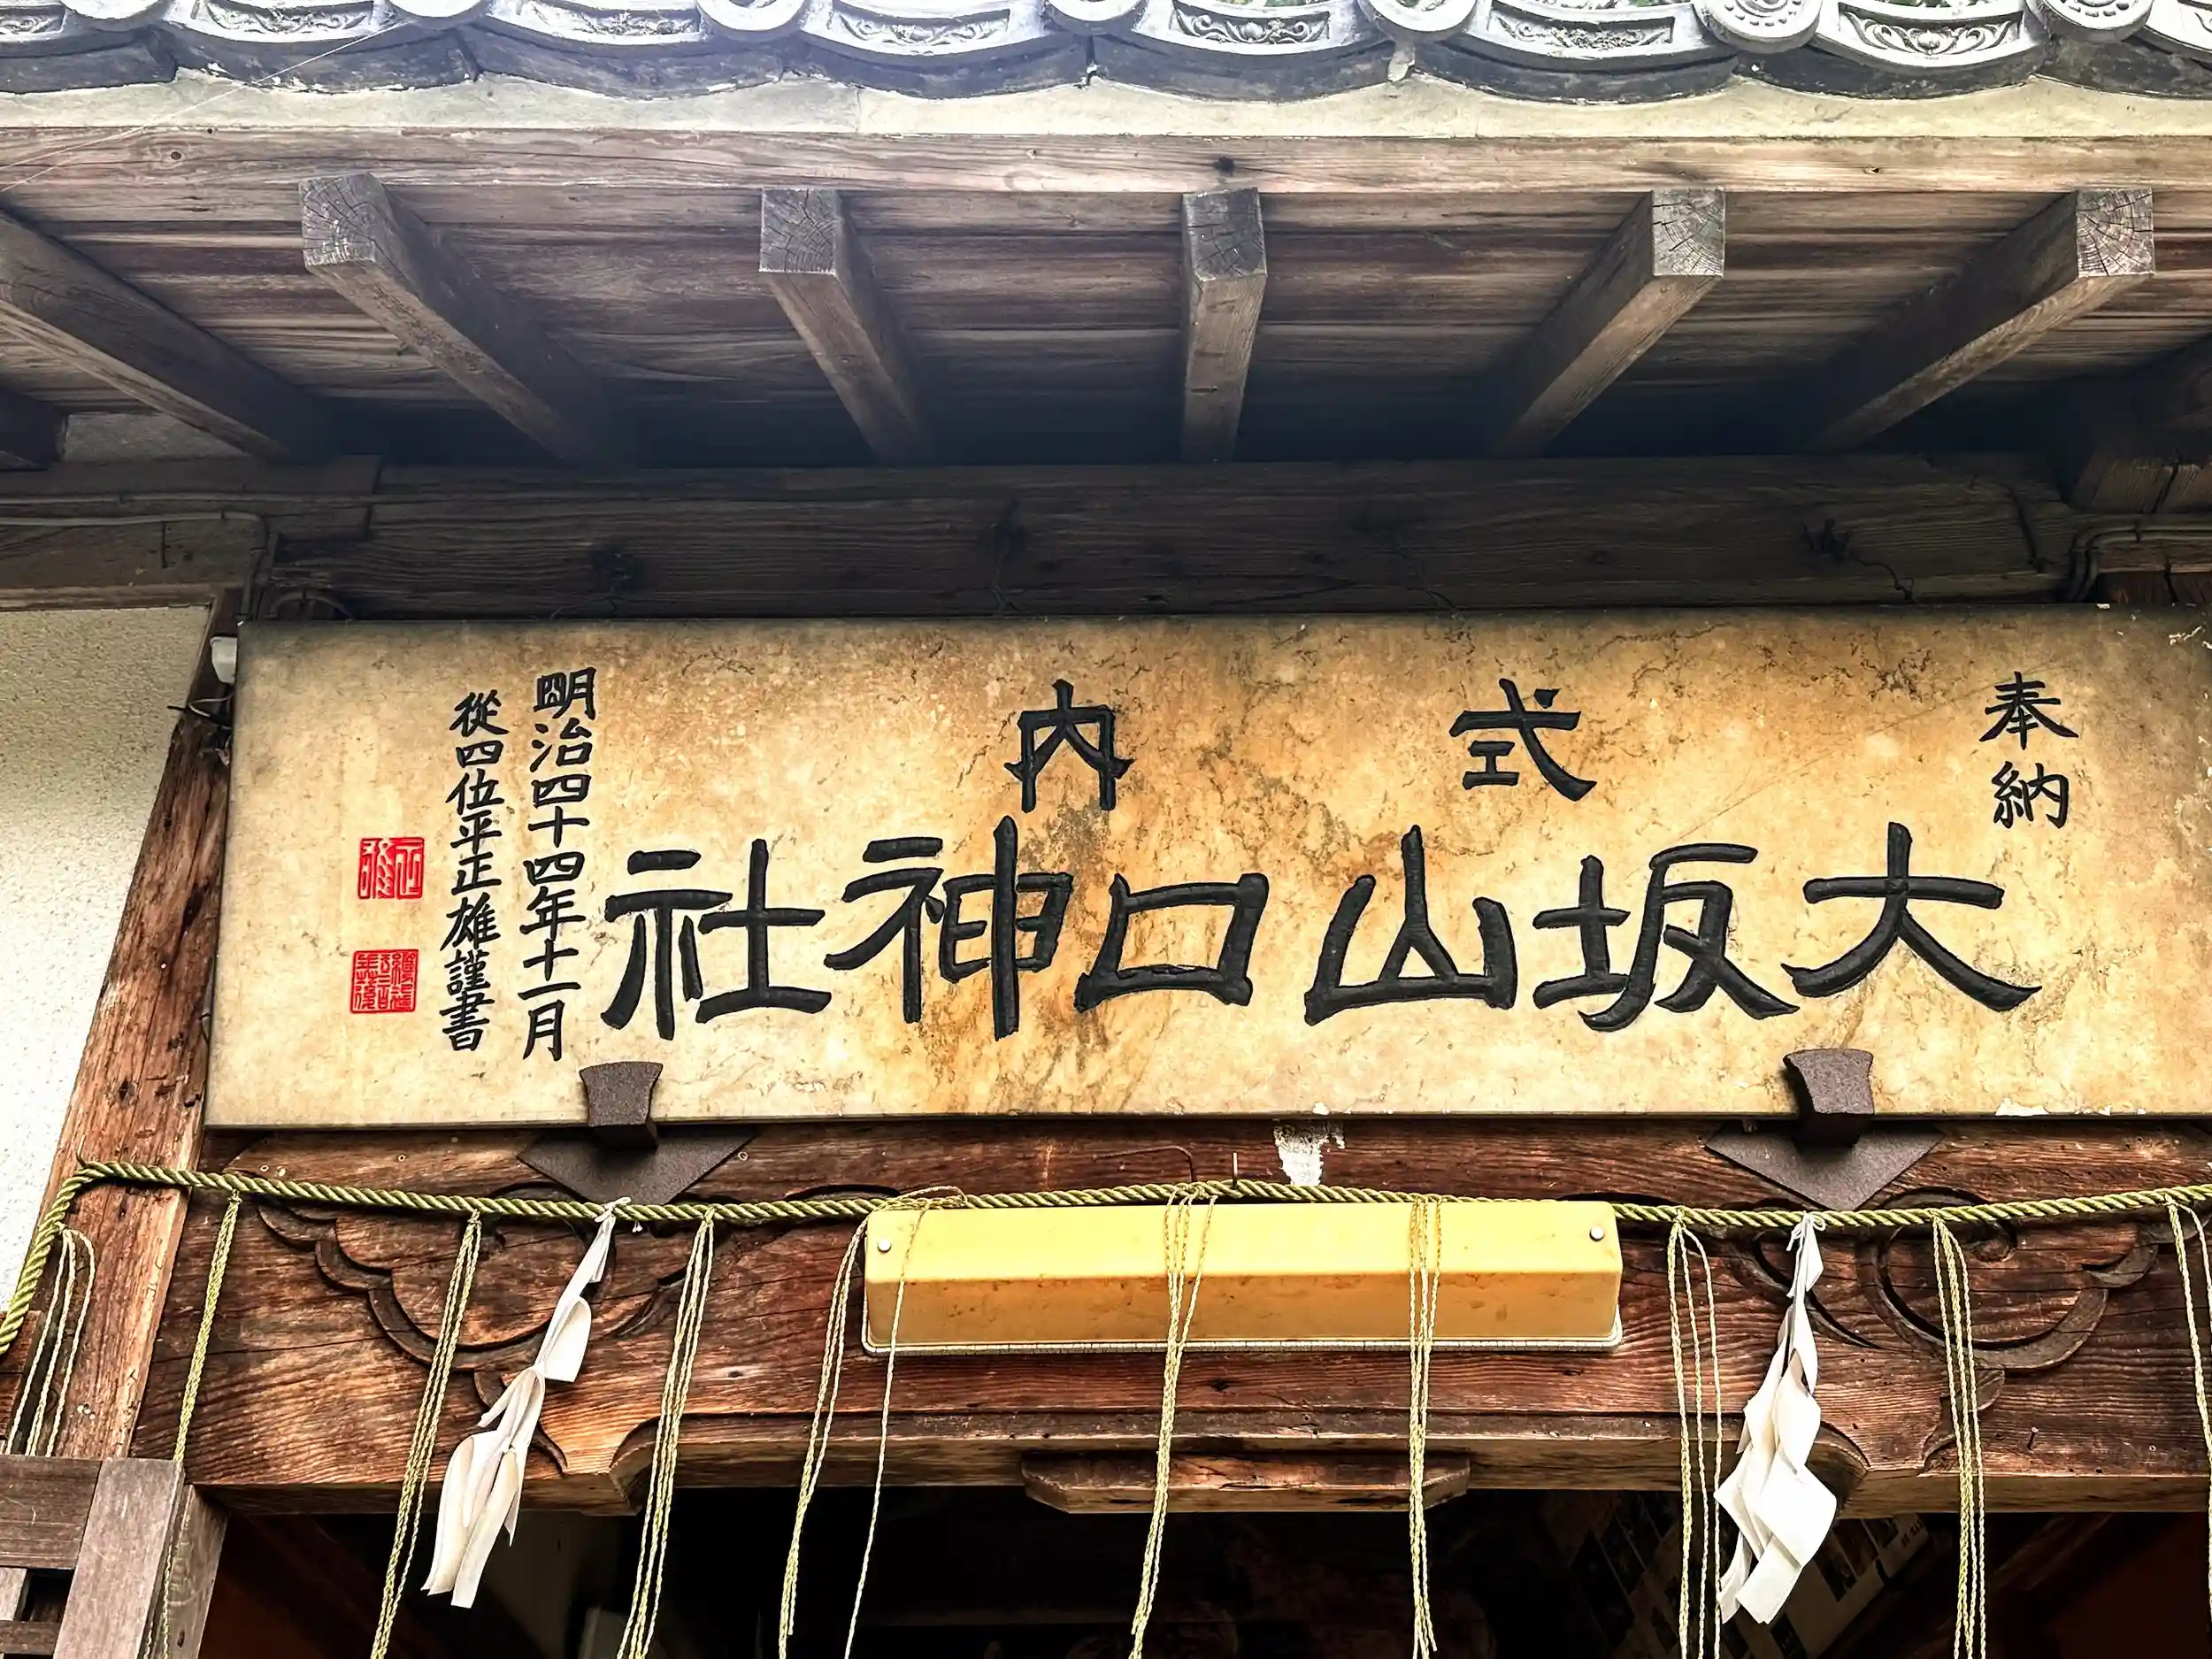 奉納
式内
大坂山口神社
明治四十四年十一月
從四位平正雄謹書